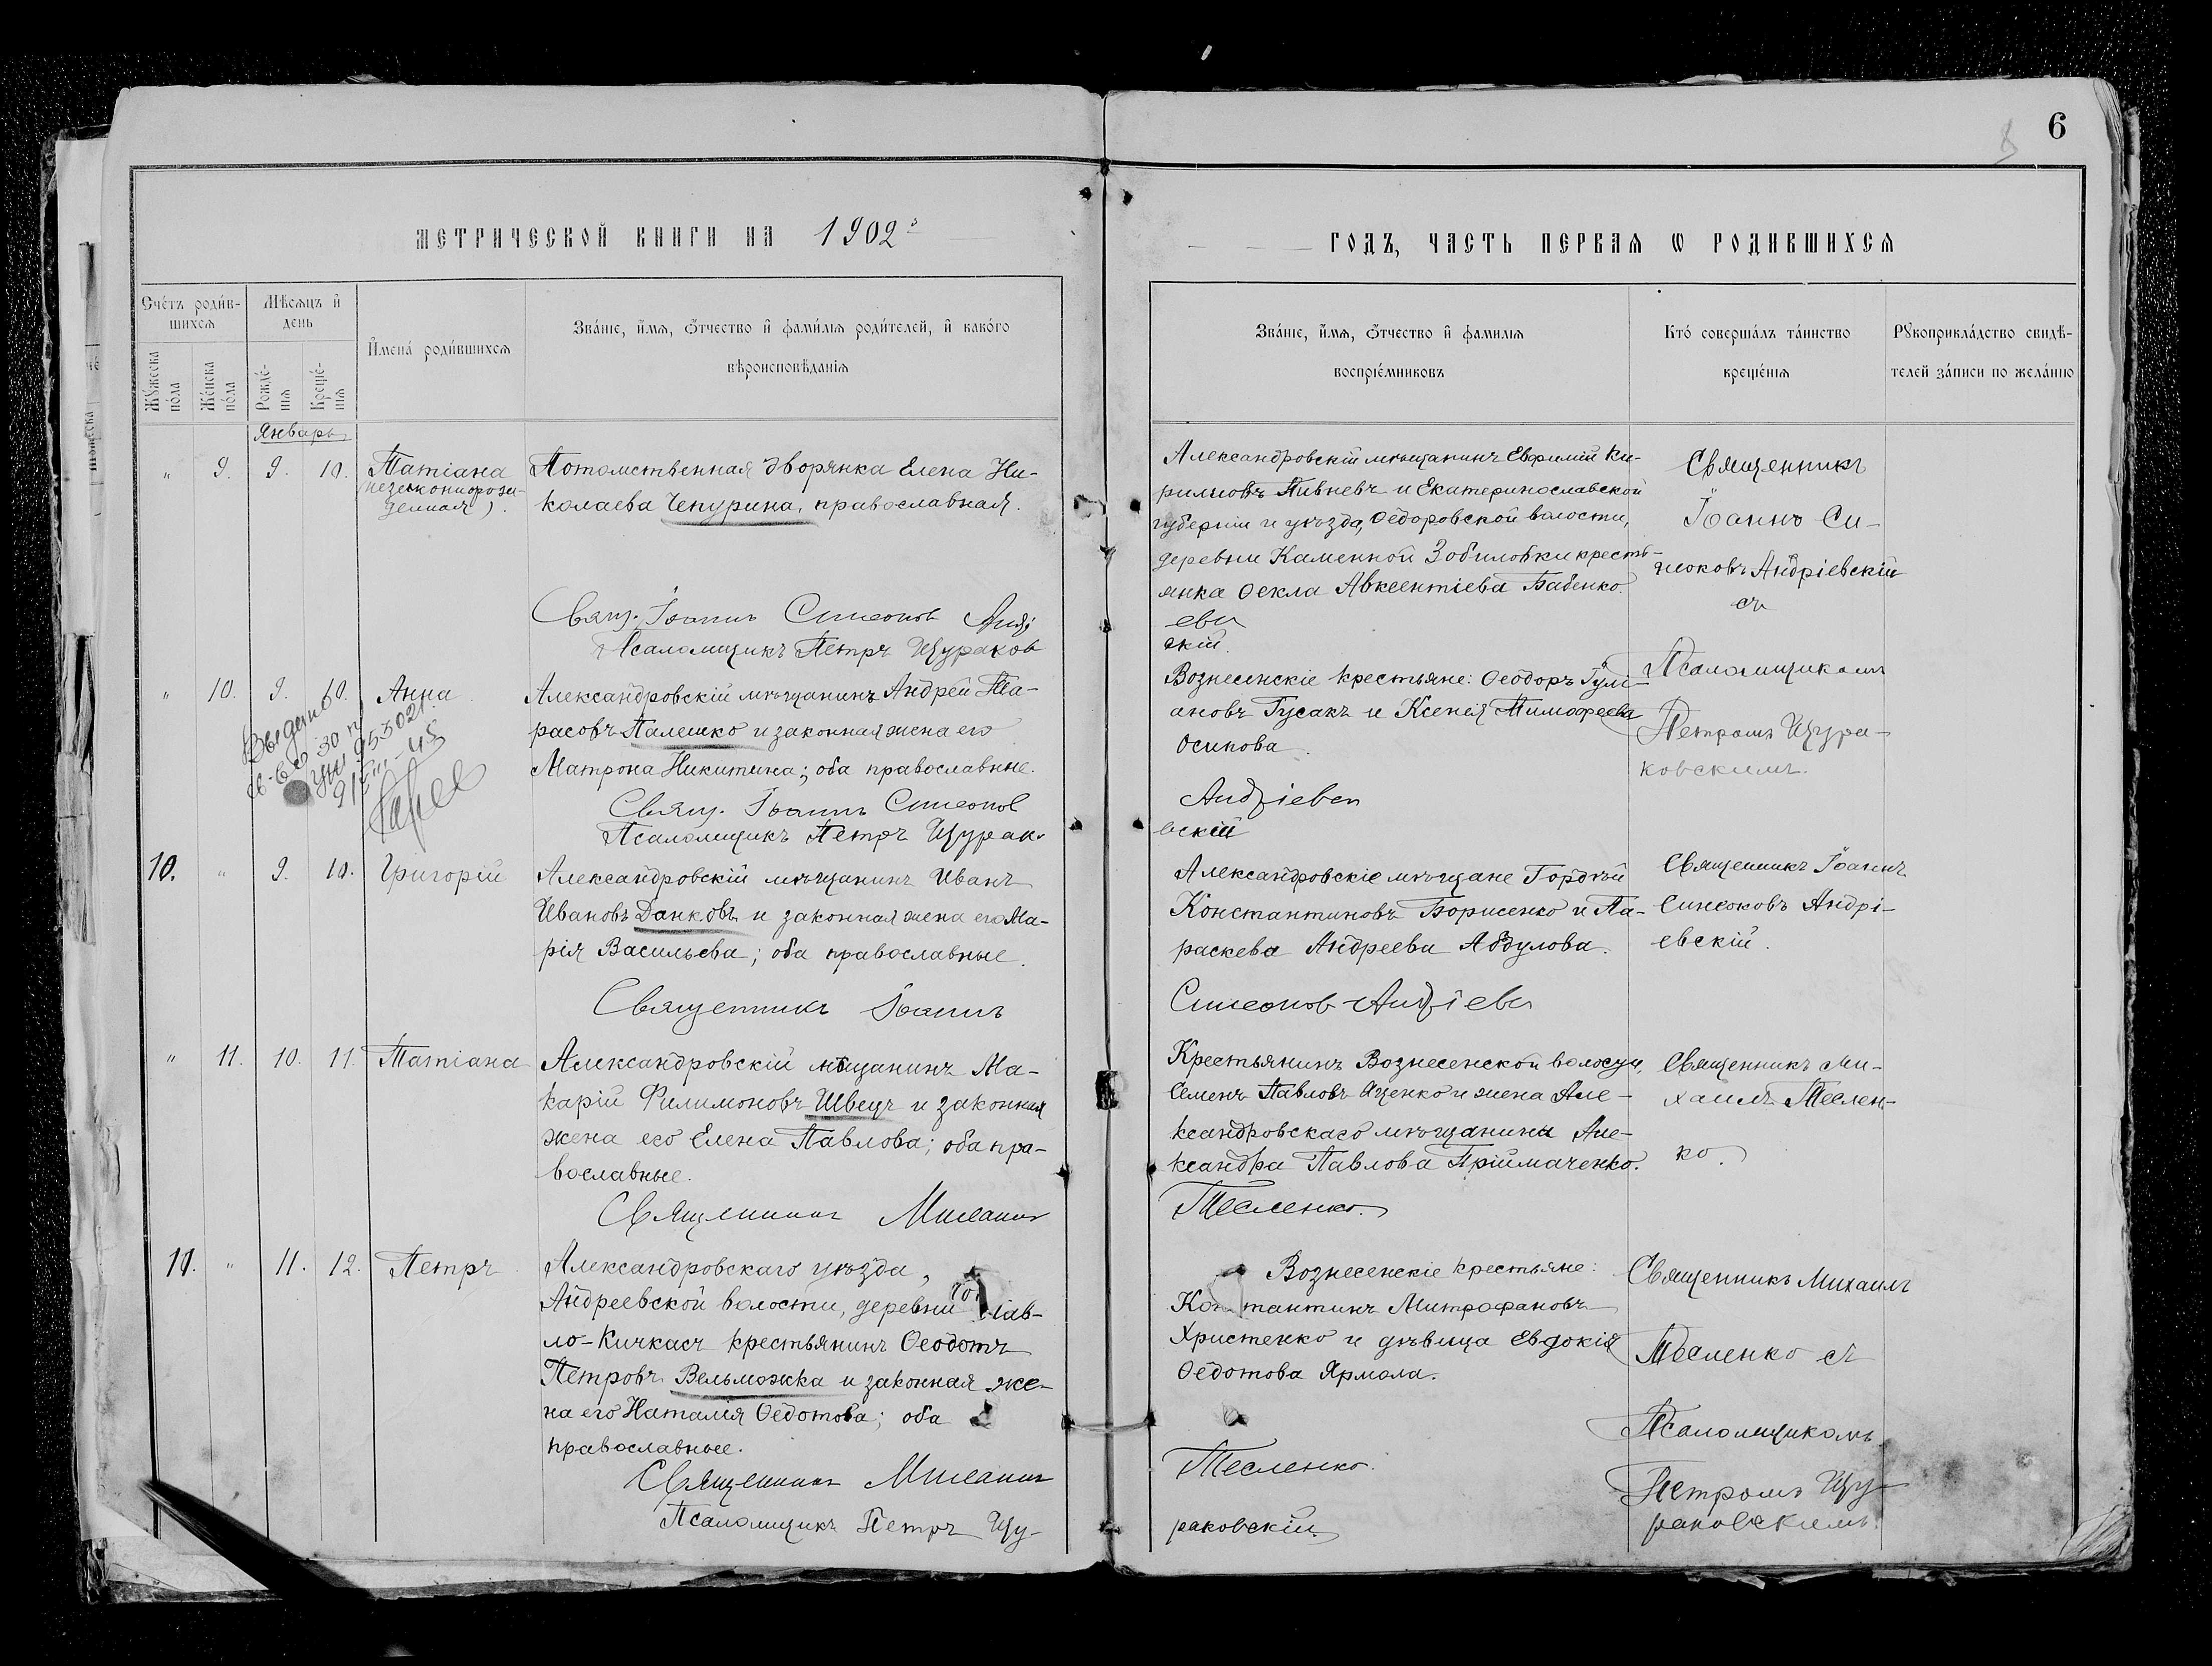 6
МЕТРИЧЕСКОЙ КНИГИ НА 1902й
ГОДЪ, ЧАСТЬ ПЕРВАѦ Ѡ РОДИВШИХСѦ
Счетъ родив-
шихсѧ
Мѣсѧцъ и
день
Мꙋжеска
пола
Женска
пола
Рожде-
ніѧ
Креще-
ніѧ
Имена родившихсѧ
Званіе, имѧ, ѿчество и фамиліѧ родителей, и какого
вѣроисповѣданіѧ
Званіе, имѧ, ѿчество и фамиліѧ
воспріемниковъ
Кто совершалъ таинство
крещеніѧ
Рꙋкоприкладство свидѣ-
телей записи по желанію
Январь
" 9. 9. 10. Татіана
(незаконнорож-
денная).
Потомственная дворянка Елена Ни-
колаева Чепурина, православная.
Свящ. Іоаннъ Симеонов Андрі
Псаломщикъ Петръ Щураков
Александровскій мѣщанинъ Евфимій Ки-
рилловъ Пивневъ и Екатеринославской
губерніи и уѣзда, Ѳедоровской волости,
деревни Каменной Зобиловки кресть-
янка Ѳекла Авксентіева Бабенко.
евъ
скій.
Священникъ
Іоаннъ Си-
меоновъ Андріевскій
съ
Псаломщикомъ
Петромъ Щура-
ковскимъ.
" 10. 9. 10. Анна
Выдано
св-во
Александровскій мѣщанинъ Андрей Та-
расовъ Палешко и законная жена его
Матрона Никитина; оба православные.
Свящ. Іоаннъ Симеонов
Псаломщикъ Петръ Щурак
Вознесенскіе крестьяне: Ѳеодоръ Іулі-
ановъ Гусакъ и Ксенія Тимоѳеева
Осипова.
Андріевск
вскій
10. " 9. 10. Григорій
Александровскій мѣщанинъ Иванъ
Ивановъ Данковъ и законная жена его Ма-
рія Васильева; оба православные.
Священникъ Іоаннъ
Александровскіе мѣщане Гордѣй
Константиновъ Борисенко и Па-
раскева Андреева Авдулова.
Симеонов Андріевъ
Священникъ Іоаннъ
Симеоновъ Андрі-
евскій.
" 11. 10. 11. Татіана
Александровскій мѣщанинъ Ма-
карій Филимоновъ Швецъ и законная
жена его Елена Павлова; оба пра-
вославные.
Священникъ Михаилъ
Крестьянинъ Вознесенской волости,
Семенъ Павловъ Яценко и жена Але-
ксандровскаго мѣщанина Але-
ксандра Павлова Пріймаченко.
Тесленко.
Священникъ Ми-
хаилъ Теслен-
ко.
11. " 11. 12. Петръ
Александровскаго уѣзда,
Андреевской волости, деревни Пав-
ло-Кичкасъ крестьянинъ Ѳеодотъ
Петровъ Вельможка и законная же-
на его Наталія Ѳедотова; оба
православные.
Священникъ Михаилъ
Псаломщикъ Петръ Щу-
Вознесенскіе крестьяне:
Константинъ Митрофановъ
Христенко и дѣвица Евдокія
Ѳедотова Ярмола.
Тесленко.
раковскій
Священникъ Михаилъ
Тесленко съ
Псаломщикомъ
Петромъ Щу-
раковскимъ.